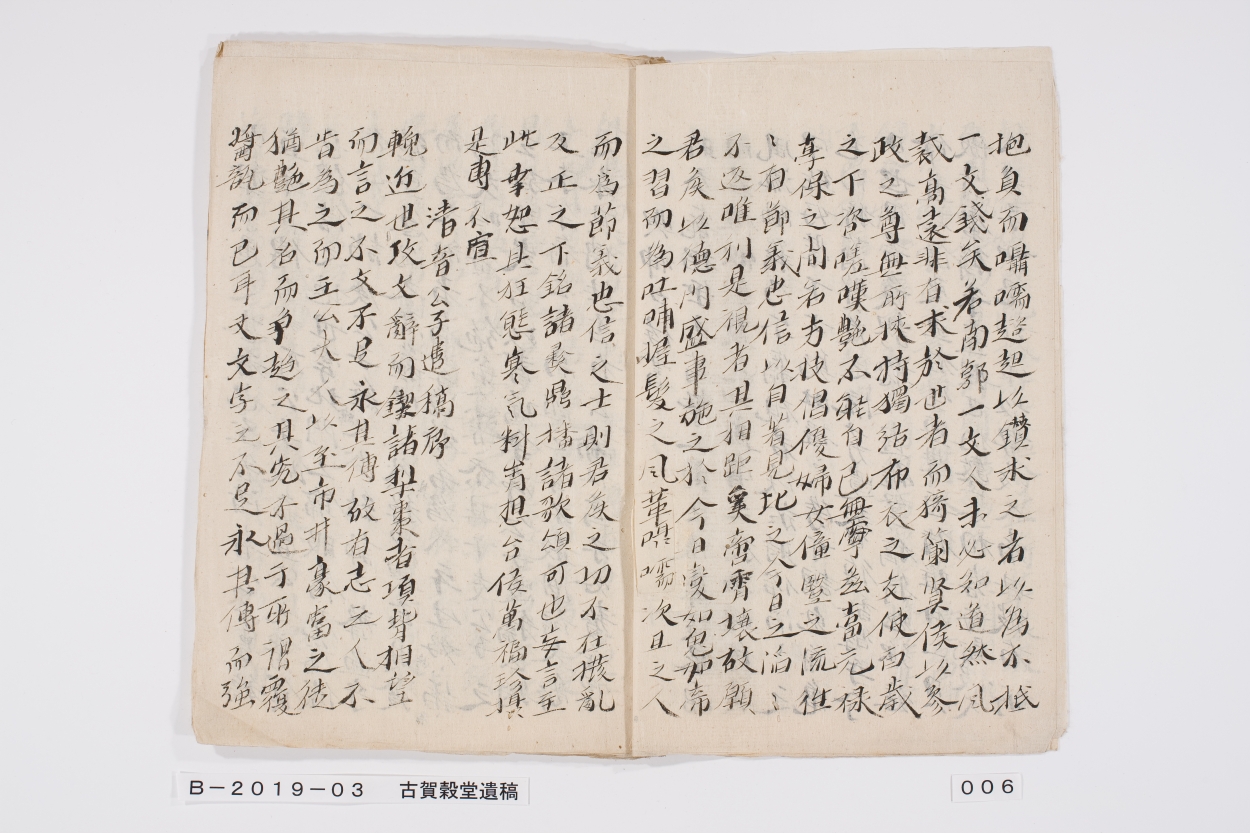 抱負而囁嚅趑趄以鑽求之者以為不抵
一文錢矣若南郭一文人未必知道然風
裁高遠非有求於世者而猗蘭賢侯以參
政之尊無所挾持獨結布衣之交使百歳
之下咨嗟嘆艶不能自已無寧茲當元禄
享保之間名方技倡優婦女僮豎之流往
〻有節義忠信以自著見比之今日之滔〻
不返唯利是視者其相距奚啻霄壤故願
君矦以德門盛事施之於今日變如鬼如帝
之習而為吐哺握髮之風革囁嚅次且之人
而為節義忠信之士則君矦之功不在撥亂
反正之下銘諸彜鼎播諸歌頌可也妄言至
此幸恕其狂態寒氣料峭想台候萬福珍攝
是專不宣
渚音公子遺稿序
輓近世攻文辭而鍥諸梨棗者項背相望
而言之不文不足永其傳故有志之人不
皆為之而王公大人以至市井豪富之徒
猶艶其名而争趨之其究不過于所謂覆
醬瓿而已耳文字之不足永其傳而強